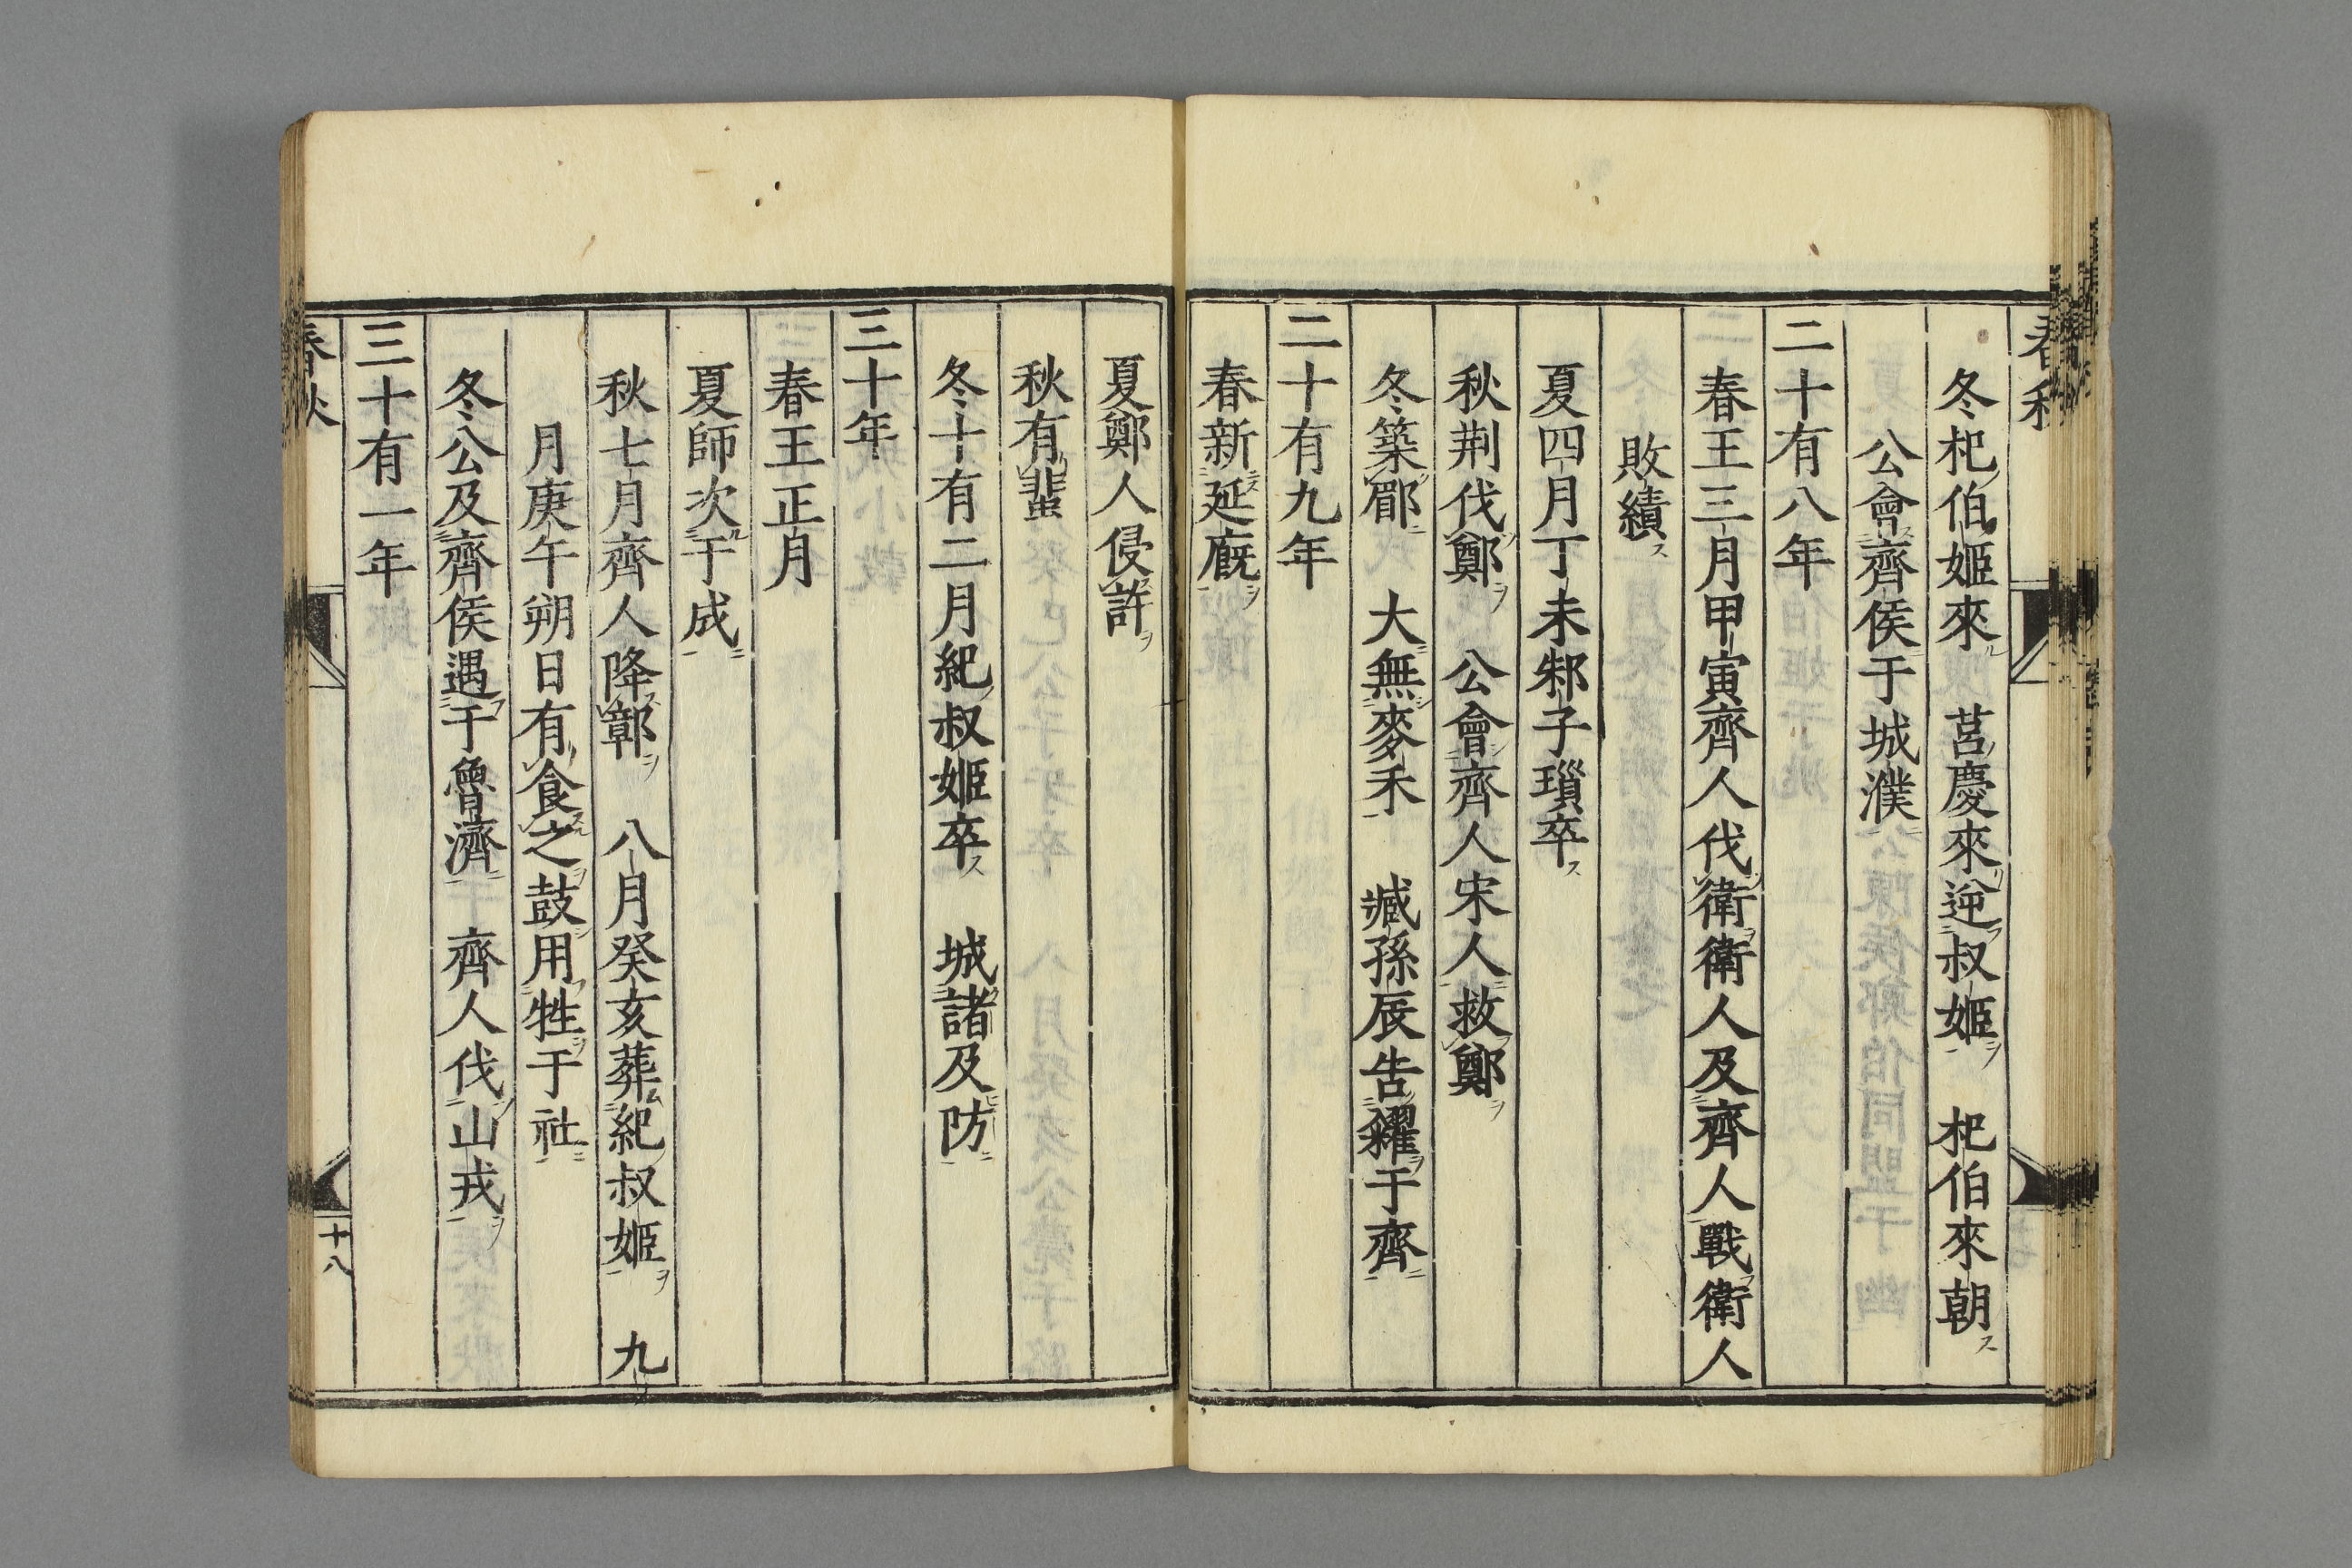 春秋
冬杞伯姬來 莒慶來逆叔姬 杞伯來朝
公會齊侯于城濮
二十有八年
春王三月甲寅齊人伐衛衛人及齊人戰衛人
敗績
夏四月丁未邾子瑣卒
秋荆伐鄭 公會齊人宋人救鄭
冬築郿 大無麥禾 臧孫辰告糴于齊
二十有九年
春新延廐
夏鄭人侵許
秋有蜚
冬十有二月紀叔姬卒 城諸及防
三十年
春王正月
夏師次于成
秋七月齊人降鄣 八月癸亥葬紀叔姬 九
月庚午朔日有食之鼓用牲于社
冬公及齊侯遇于魯濟 齊人伐山戎
三十有一年
春秋
十八